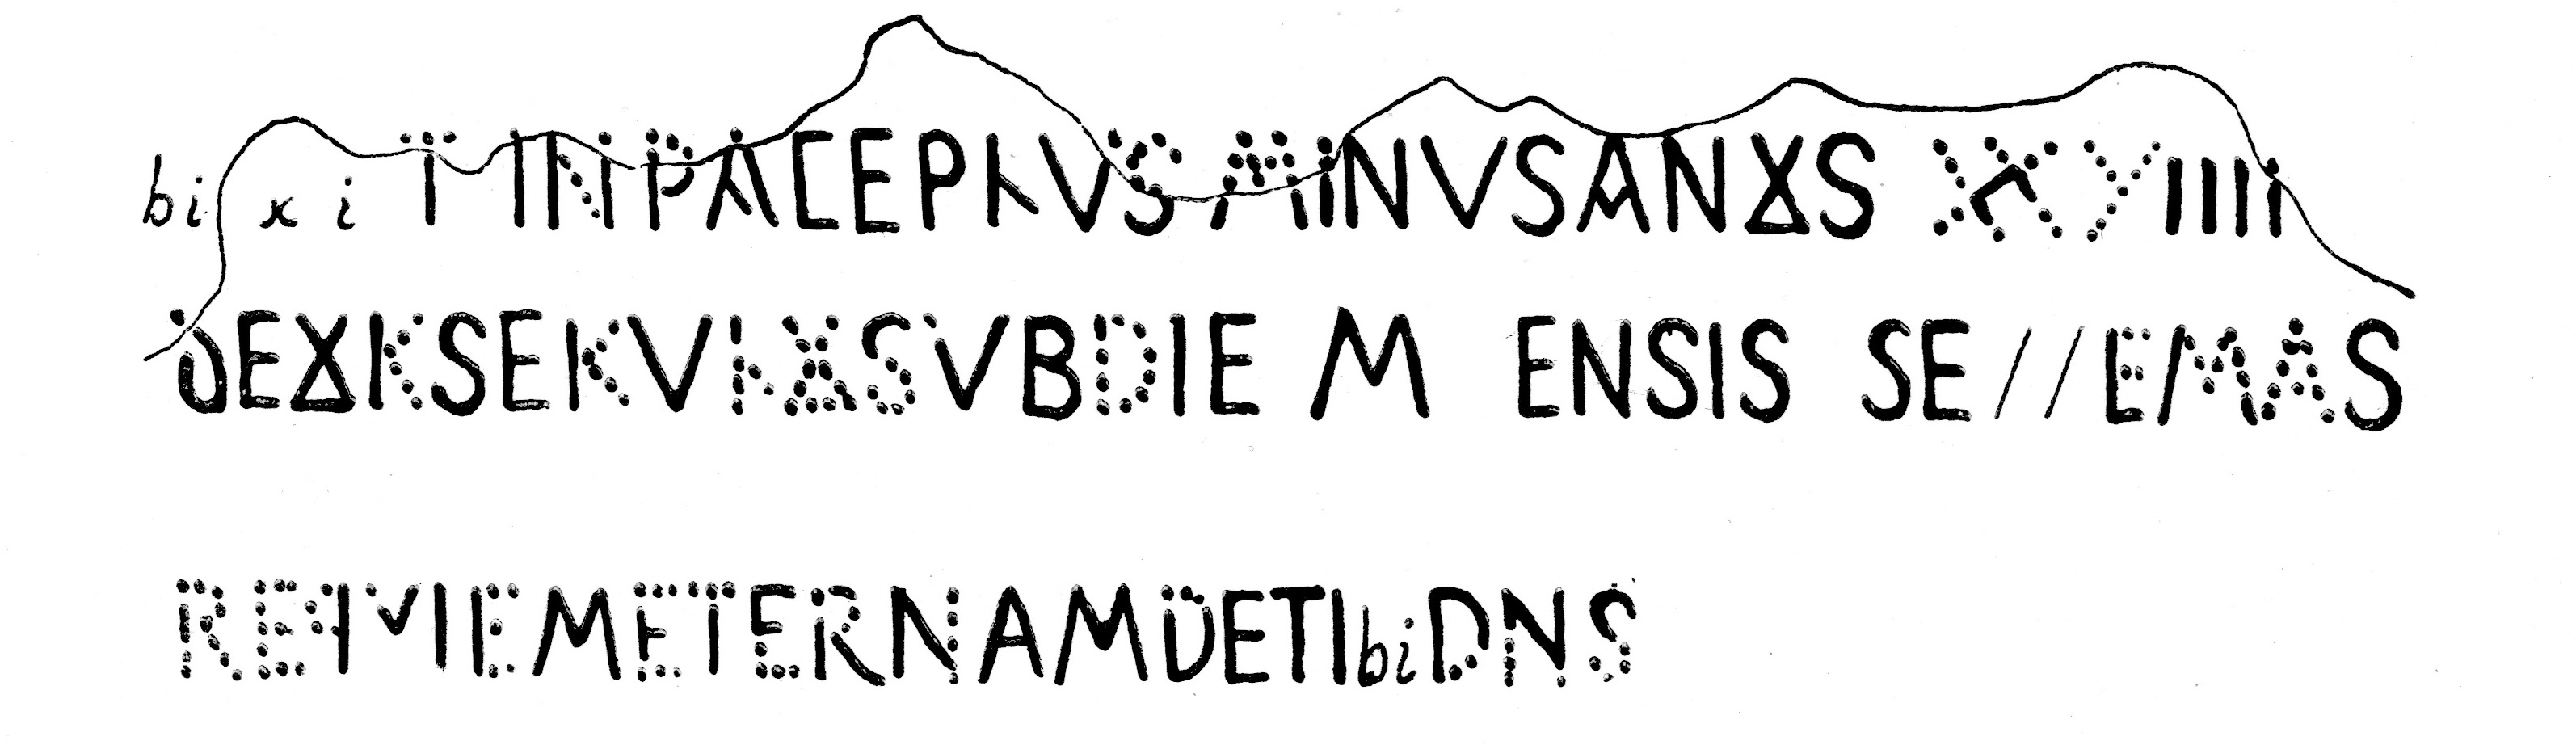 bixi T INPACEPLVS MINVSANOS XXVIIII
DEOKSEKVLOSVBDIE M ENSIS SE//EMAS
REQVIEMETERNAMDETIbiDNS